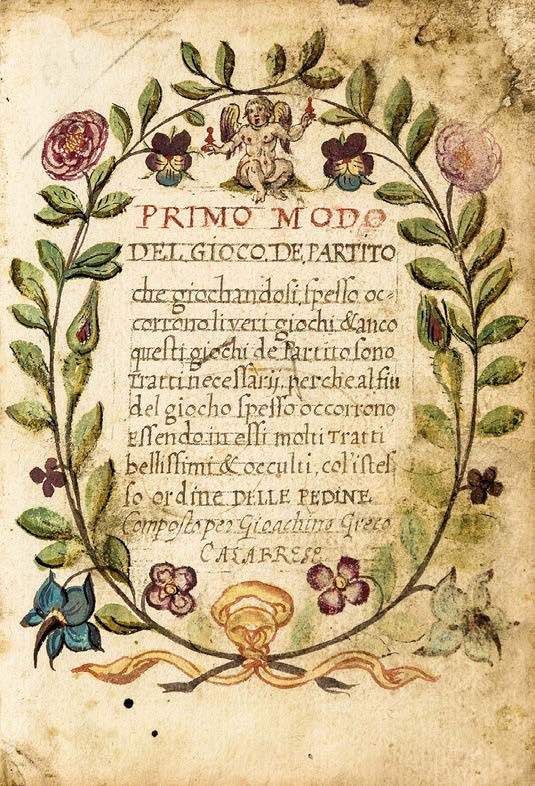 PRIMO MODO
DEL GIOCO DE PARTITO
che giochandosi, spesso oc=
corrono li veri giochi & anco
questi giochi de Partito sono
Tratti necessarij, perche al fin
del giocho spesso occorrono
Essendo in essi molti Tratti
bellissimi & occulti, col'istes-
so ordine DELLE PEDINE
Composto per Gioachino Greco
CALABRESE